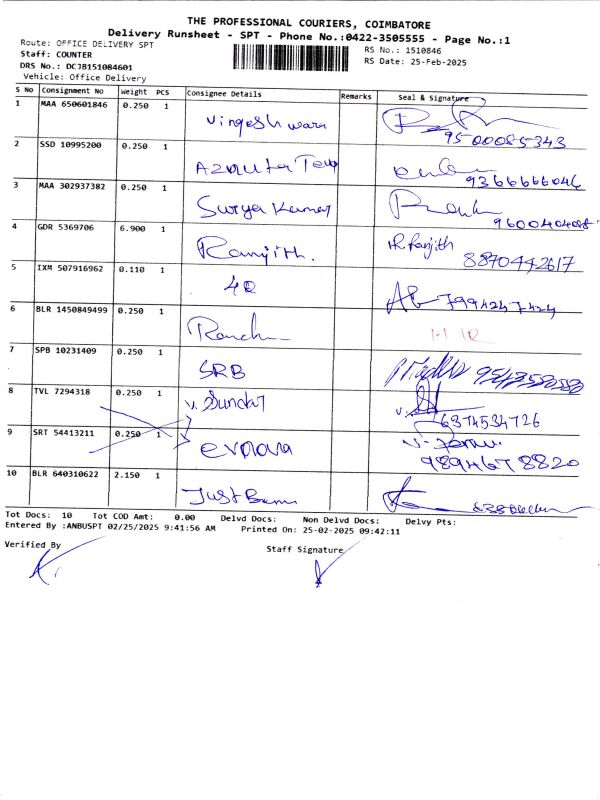 THE PROFESSIONAL COURIERS, COIMBATORE
Delivery Runsheet - SPT - Phone No.:0422-3505555 - Page No.:1
Route: OFFICE DELIVERY SPT
RS No.: 1510846
Staff: COUNTER
RS Date: 25-Feb-2025
DRS No.: DCJB151084601
Vehicle: Office Delivery
S No Consignment No Weight PCS Consignee Details Remarks Seal & Signature
1 MAA 650601846 0.250 1 Vingeshwaran
9500085343
2 SSD 10995200 0.250 1
9366666046
3 MAA 302937382 0.250 1 Surya Kumar
9600404088
4 GDR 5369706 6.900 1 Ranjith. R. Ranjith
8870442617
5 IXM 507916962 0.110 1
7994247424
6 BLR 1450849499 0.250 1
7 SPB 10231409 0.250 1 SRB
8 TVL 7294318 0.250 1 V. Sundar
6374534726
9 SRT 54413211 0.250 1
9894678820
10 BLR 640310622 2.150 1
Tot Docs: 10 Tot COD Amt: 0.00 Delvd Docs: Non Delvd Docs: Delvy Pts:
Entered By :ANBUSPT 02/25/2025 9:41:56 AM Printed On: 25-02-2025 09:42:11
Verified By
Staff Signature